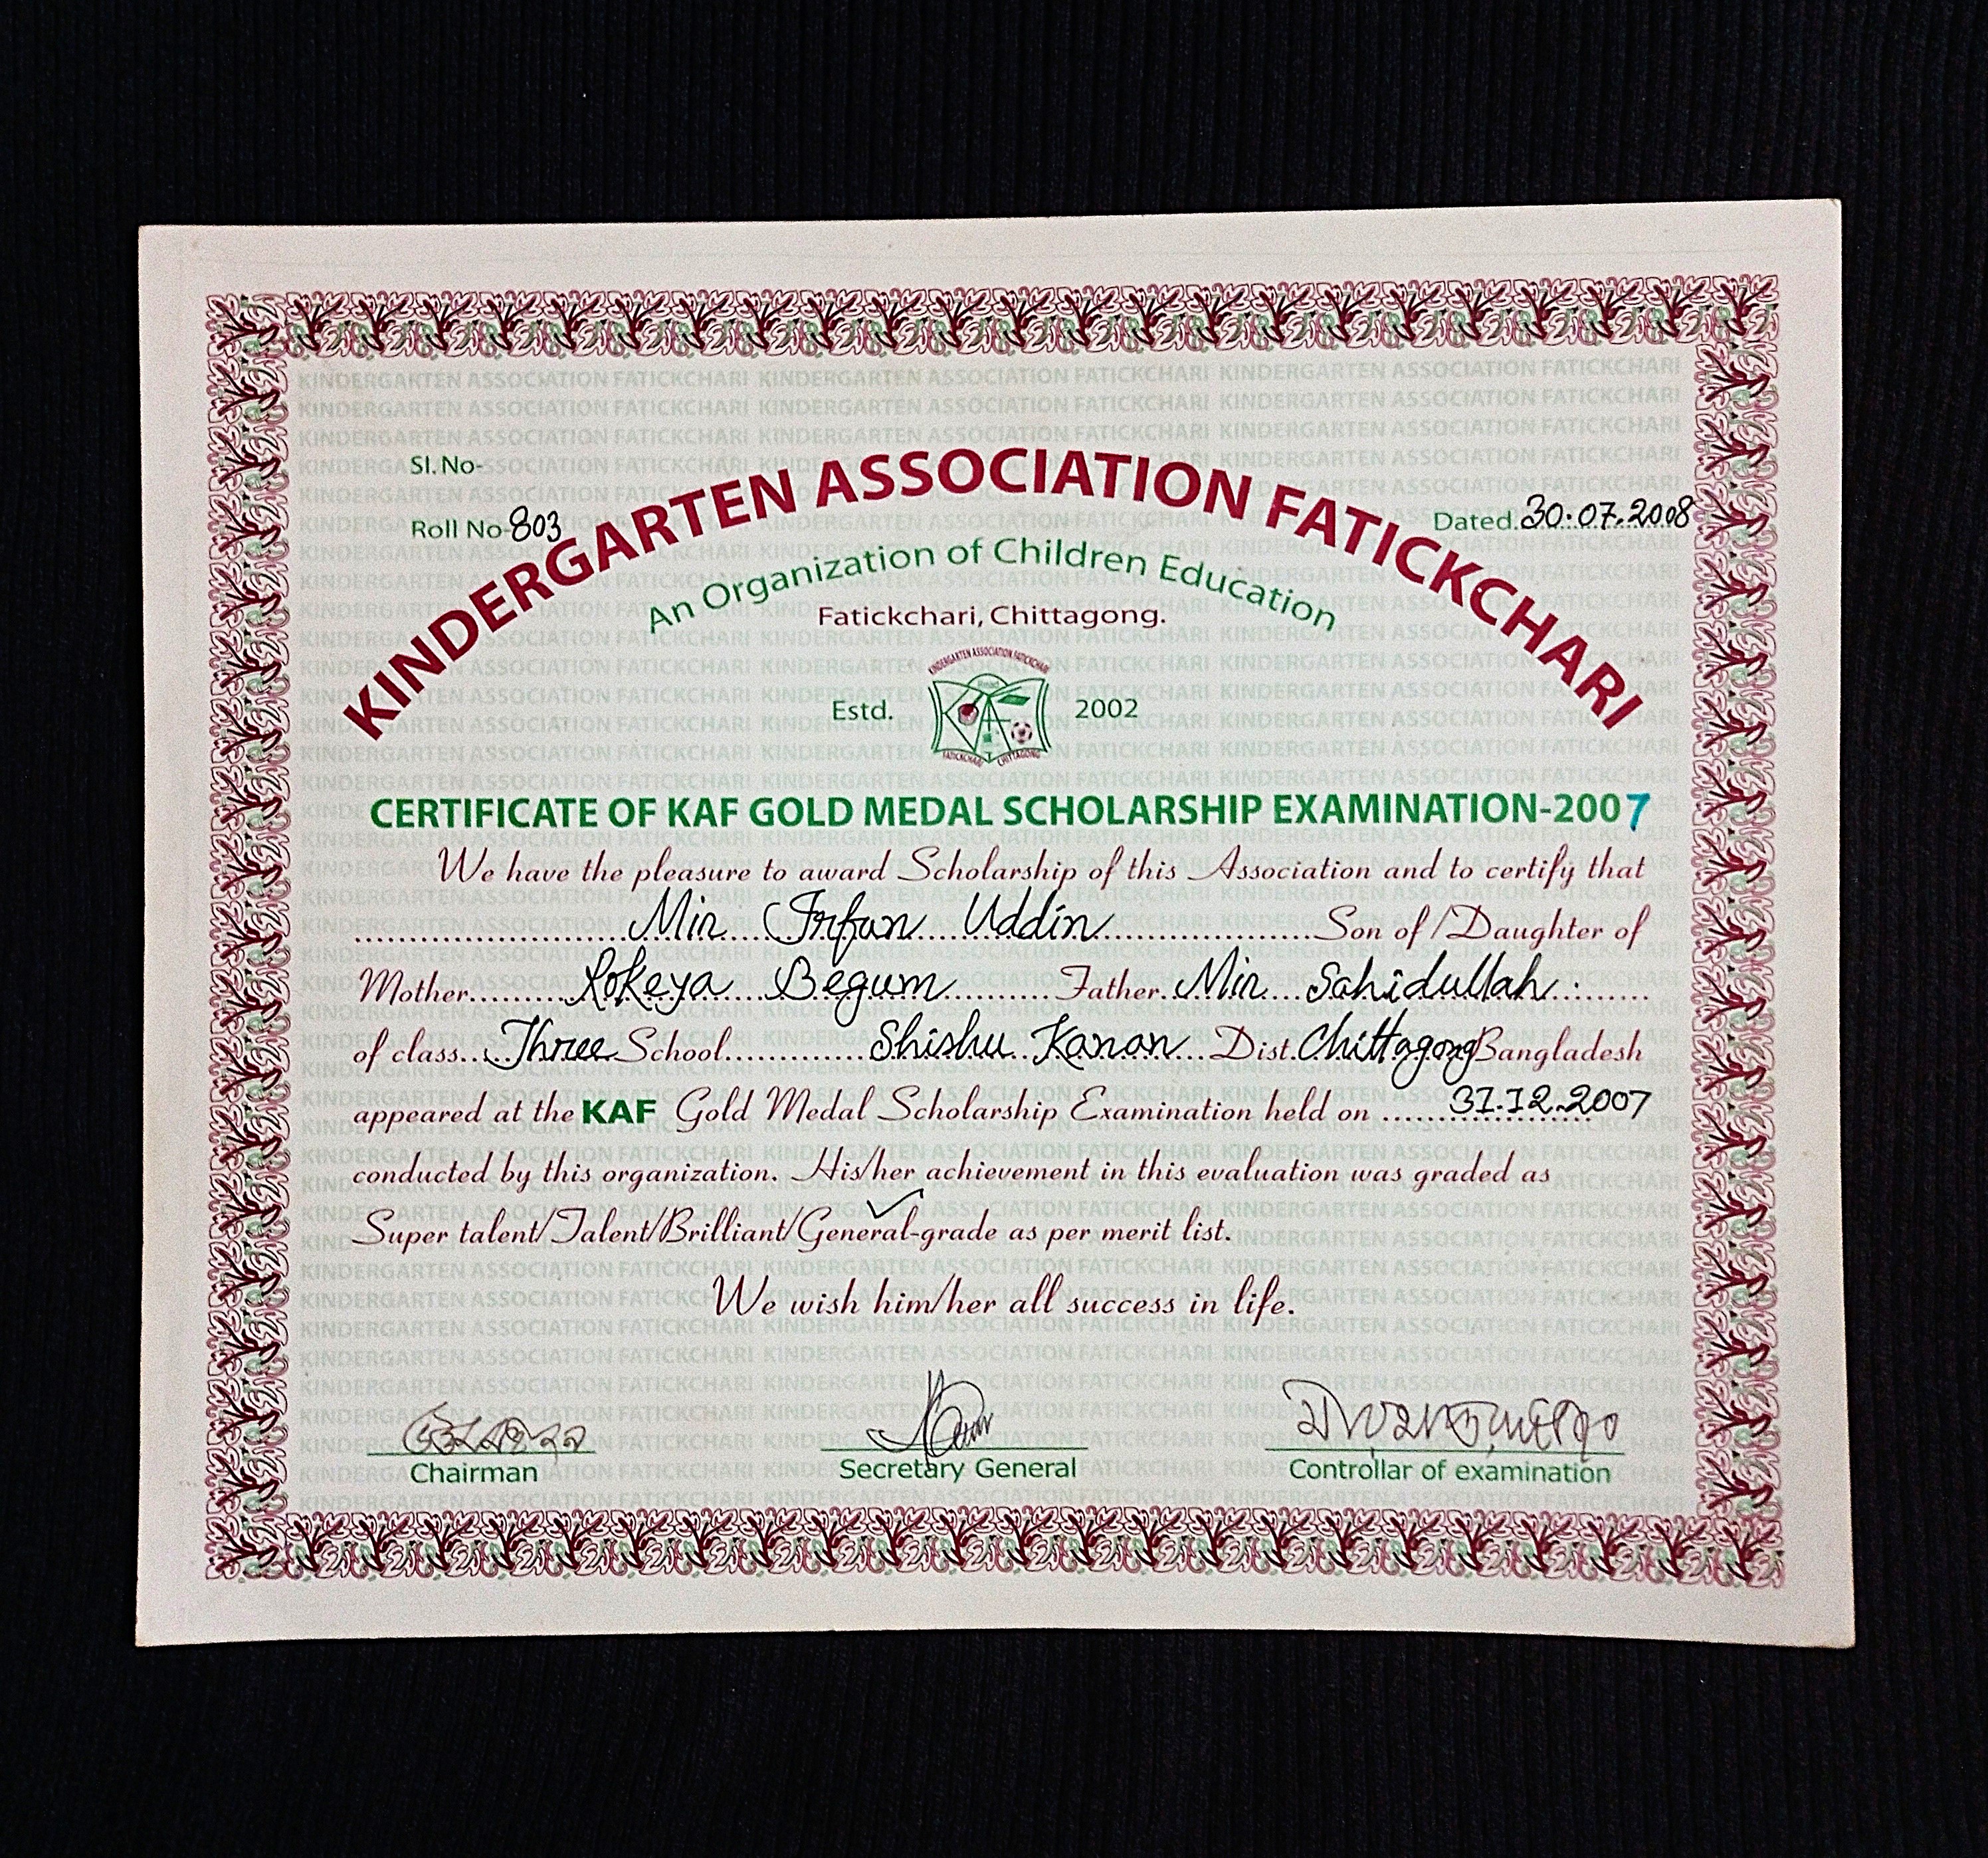 Sl. No-
KINDERGARTEN ASSOCIATION FATICKCHARI
Roll No-803
Dated.30.07.2008
An Organization of Children Education
Fatickchari, Chittagong.
KINDERGARTEN ASSOCIATION FATICKCHARI
Read
Estd. 2002
FATICKCHARI CHITTAGONG
CERTIFICATE OF KAF GOLD MEDAL SCHOLARSHIP EXAMINATION-2007
We have the pleasure to award Scholarship of this Association and to certify that
Mir Irfan Uddin Son of/Daughter of
Mother Rokeya Begum Father Mir Sahidullah
of class Three School Shishu Kanon Dist. Chittagong Bangladesh
appeared at the KAF Gold Medal Scholarship Examination held on 31.12.2007
conducted by this organization. His/her achievement in this evaluation was graded as
Super talent/Talent/Brilliant/General-grade as per merit list.
We wish him/her all success in life.
Chairman
Secretary General
Controllar of examination